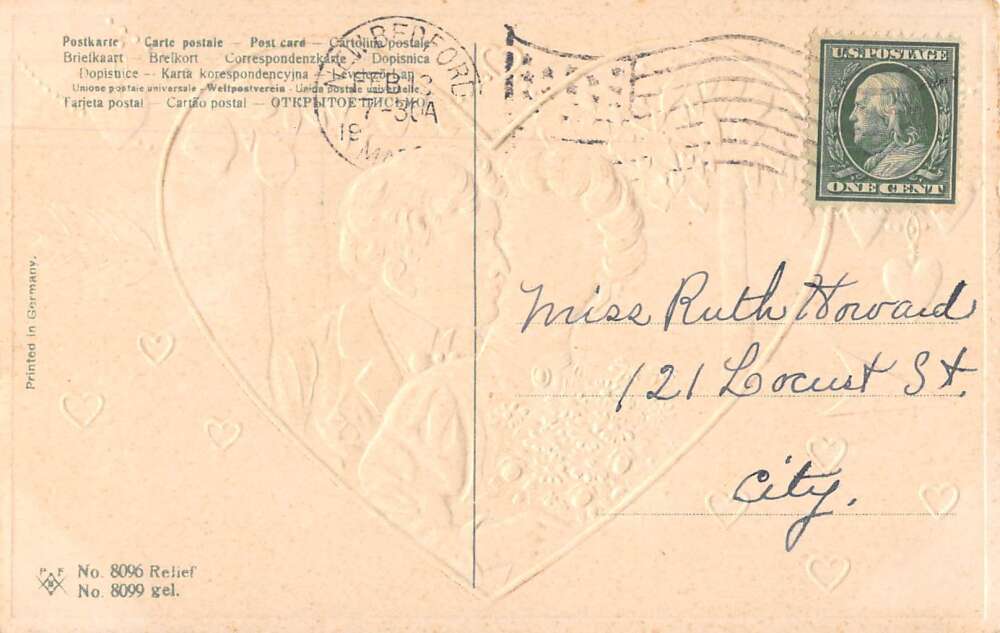 Postkarte – Carte postale – Post card – Cartolina postale
Briefkaart – Brefkort – Correspondenzkarte – Dopisnica
Dopisnice – Karta korespondencyjna – Levelező-Lap
Unione postale universale – Weltpostverein – Unión postale universelle
Tarjeta postal – Cartão postal – ОТКРЫТОЕ ПИСЬМО
NEW BEDFORD
FEB
7-30A
19
U.S. POSTAGE
ONE CENT
Printed in Germany.
Miss Ruth Howard
121 Locust St.
City.
P F
No. 8096 Relief
No. 8099 gel.